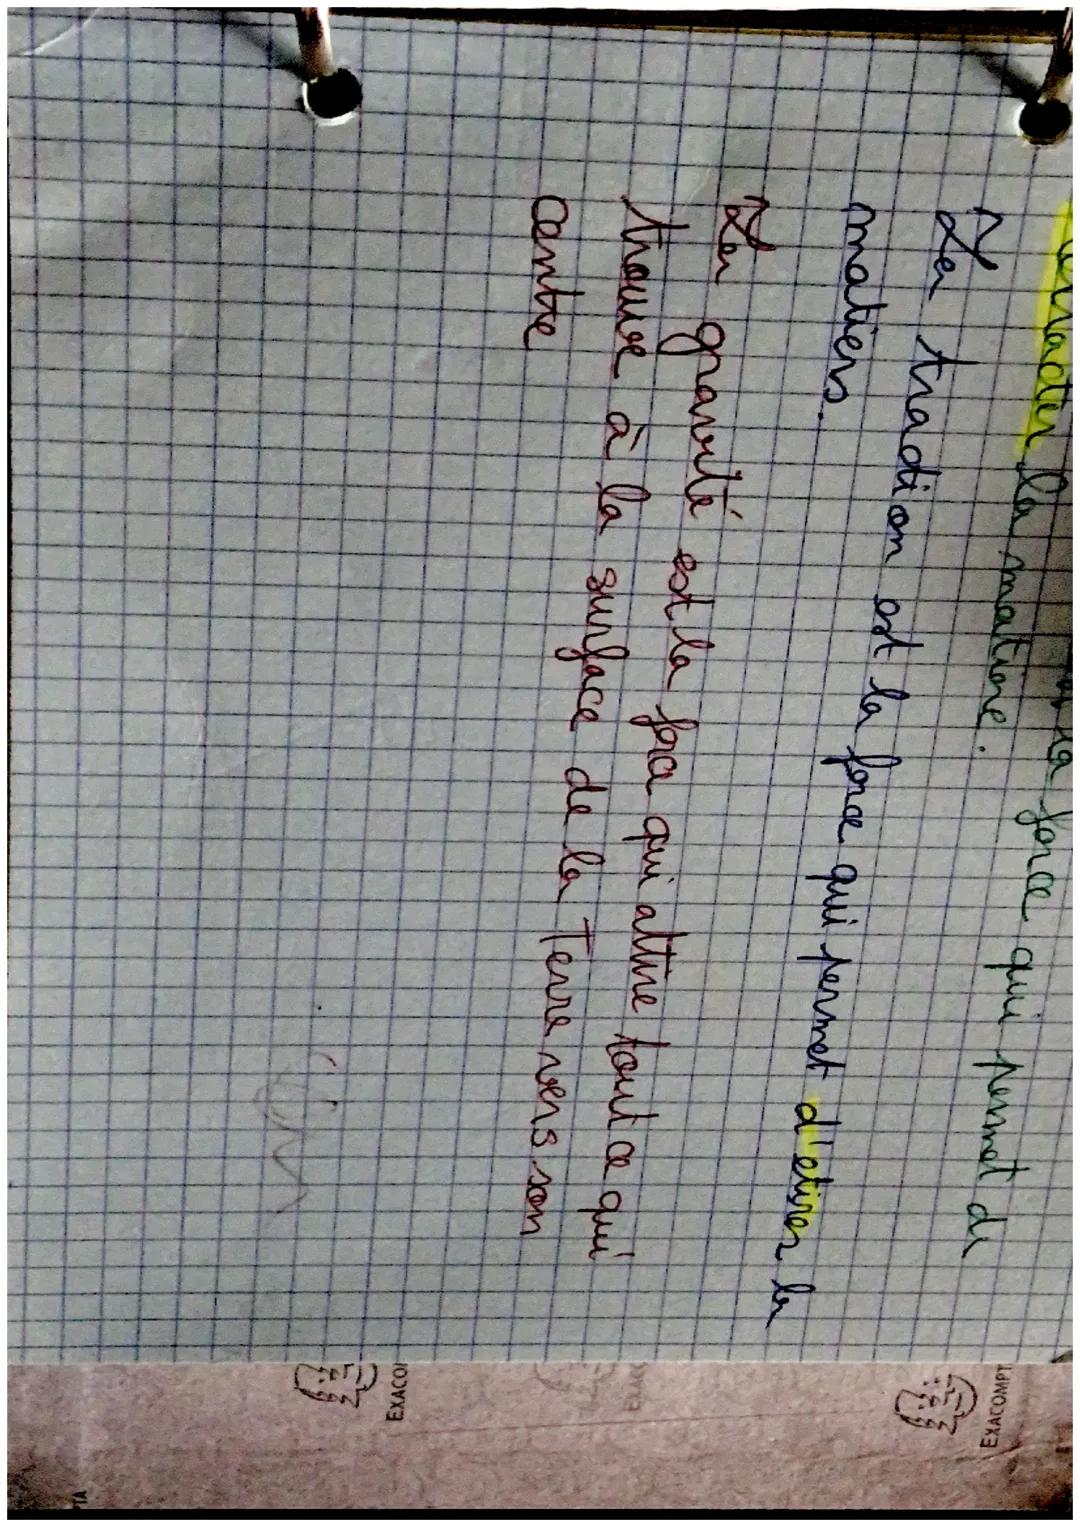 la force qui permet de
la matière.
La traction est la force qui permet d'etirer la
matiers.
La gravité est la forca qui attire tout ce qui
trouve à la surface de la Terre vers son
centre
EXACOMPT
EXAC
EXACOI
PTA